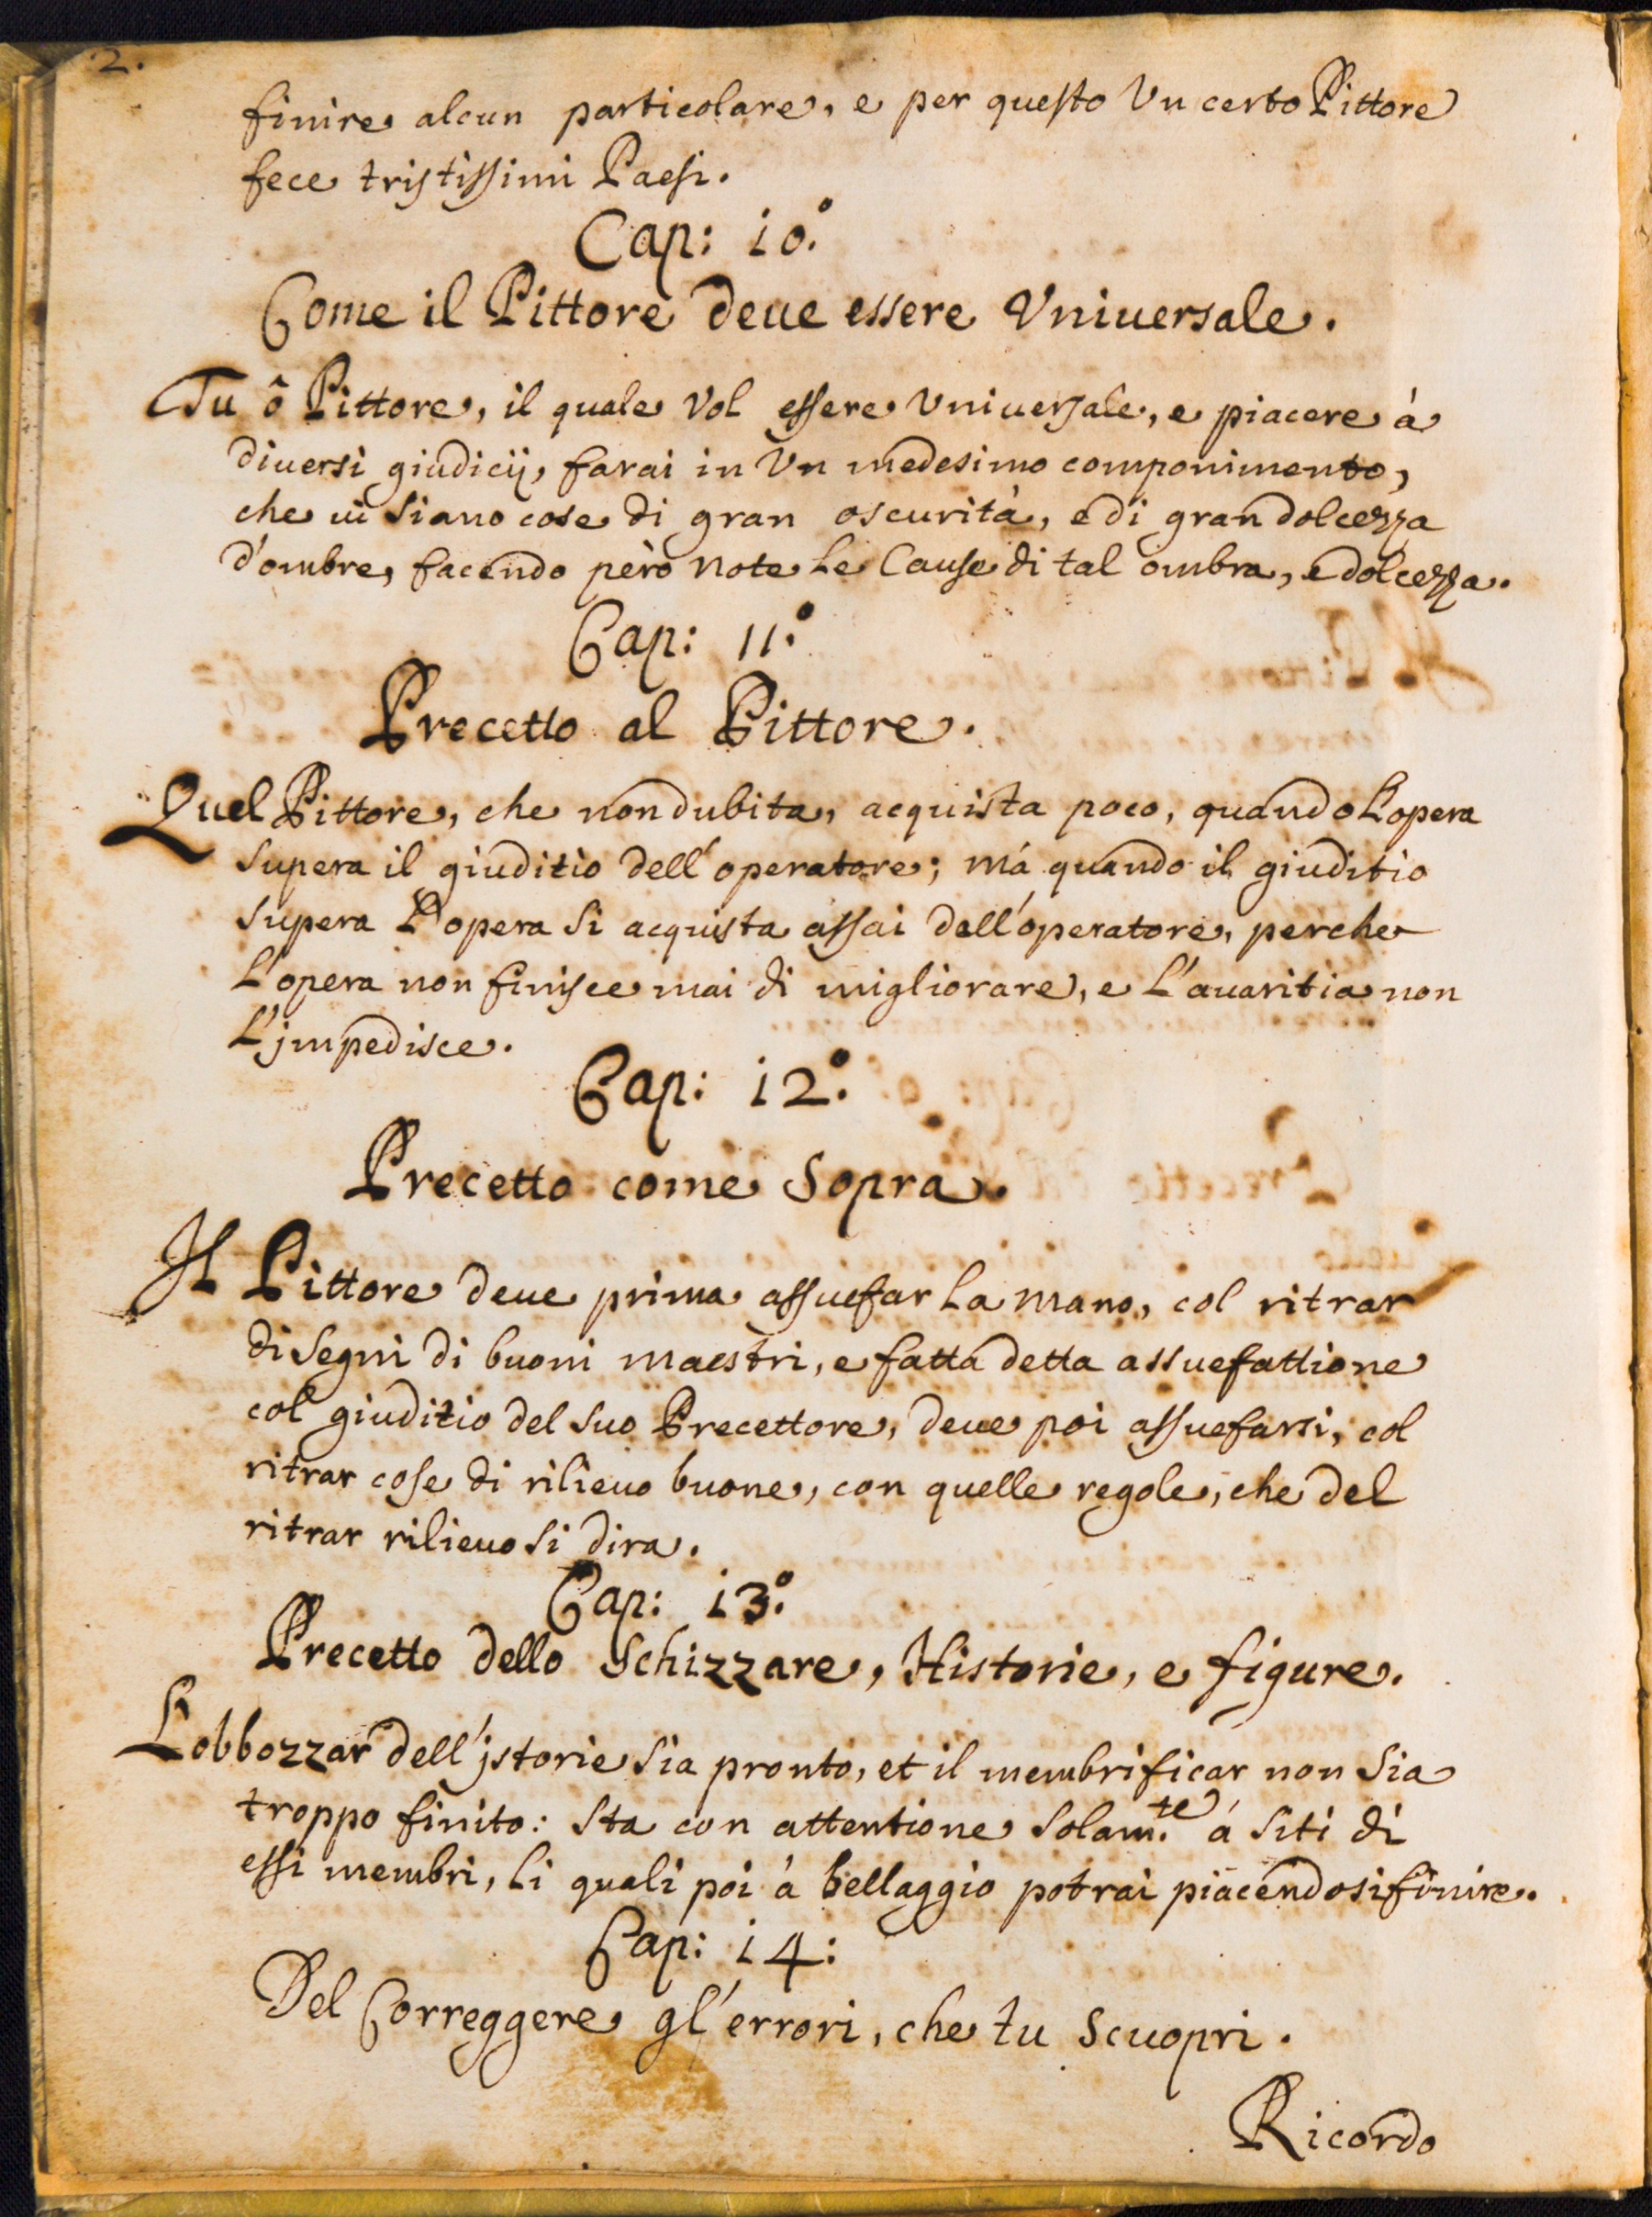 2.
finire alcun particolare, e per questo Vn certo Pittore
fece tristissimi Paesi.
Cap: 10.º
Come il Pittore deue essere Vniuersale.
Tu ô Pittore, il quale Vol essere Vniuersale, e piacere à
diuersi giudicij, farai in Vn medesimo componimento,
che ui siano cose di gran oscurità, e di gran dolcezza
d'ombre, facendo però note le Cause di tal ombra, e dolcezza.
Cap: 11.º
Precetto al Pittore.
Quel Pittore, che non dubita, acquista poco, quando L'opera
supera il giuditio dell'operatore; má quando il giuditio
supera L'opera si acquista assai dell'operatore, perche
L'opera non finisce mai di migliorare, e L'auaritia non
L'jmpedisce.
Cap: 12.º
Precetto come Sopra.
Il Pittore deue prima assuefar la mano, col ritrar
disegni di buoni maestri, e fatta detta assuefattione
col giuditio del suo Precettore, deue poi assuefarsi, col
ritrar cose di rilieuo buone, con quelle regole, che del
ritrar rilieuo si dira.
Cap: 13.º
Precetto dello Schizzare, Historie, e figure.
Lobbozzar dell'jstorie sia pronto, et il membrificar non sia
troppo finito: sta con attentione solam.te á siti di
essi membri, li quali poi à bellaggio potrai piacendosi finire.
Cap: 14:
Del Correggere gl'errori, che tu scuopri.
Ricordo